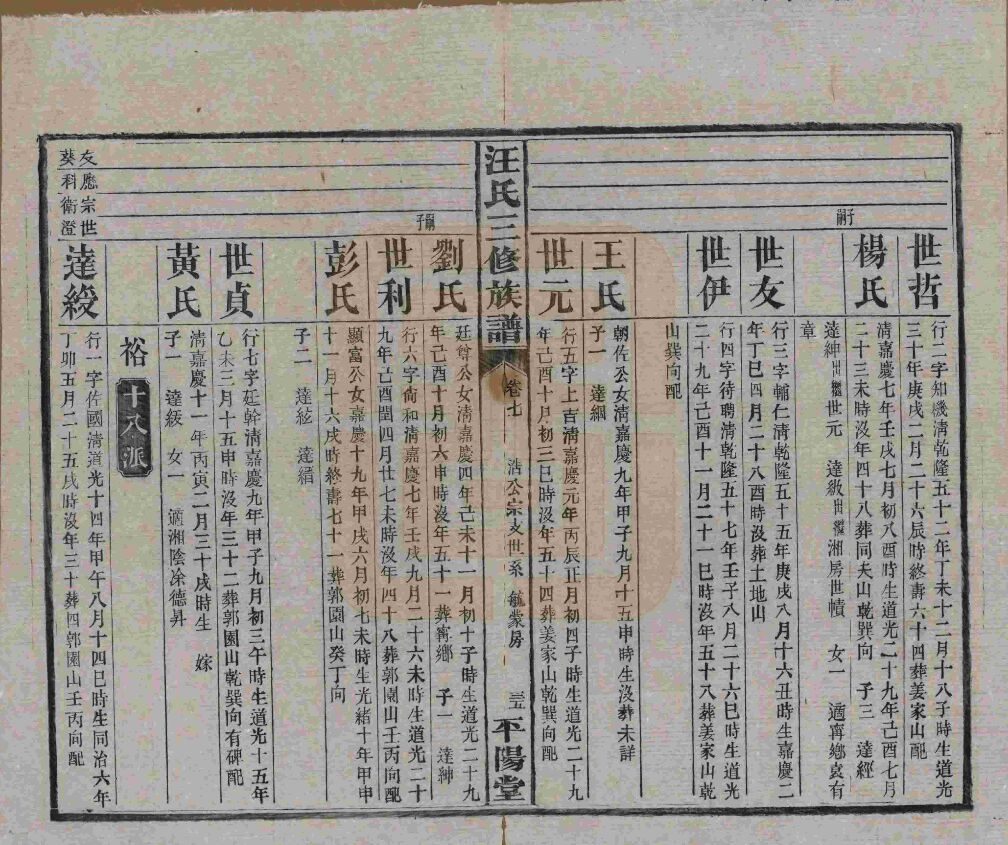 世哲
行二字知機清乾隆五十二年丁未十二月十八子時生道光
三十年庚戌二月二十六辰時終壽六十四葬姜家山配
楊氏
清嘉慶七年壬戌七月初八酉時生道光二十九年己酉七月
二十三未時沒年四十八葬同夫山乾巽向 子三 達經
嗣子
達紳出繼世元 達級出繼湘房世幘 女一 適甯鄉袁有
章
世友
行三字輔仁清乾隆五十五年庚戌八月十六丑時生嘉慶二
年丁巳四月二十八酉時沒葬土地山
世伊
行四字待聘清乾隆五十七年壬子八月二十六巳時生道光
二十九年己酉十一月二十一巳時沒年五十八葬姜家山乾
山巽向配
王氏
朝佐公女清嘉慶九年甲子九月十五申時生沒葬未詳
子一 達綱
世元
行五字上吉清嘉慶元年丙辰正月初四子時生道光二十九
年己酉十月初三巳時沒年五十四葬姜家山乾巽向配
汪氏三修族譜
卷七
浩公宗支世系 毓蒙房
三五
平陽堂
劉氏
廷尊公女清嘉慶四年己未十一月初十子時生道光二十九
年己酉十月初六申時沒年五十一葬甯鄉 子一 達紳
嗣子
世利
行六字尚和清嘉慶七年壬戌九月二十六未時生道光二十
九年己酉閏四月廿七未時沒年四十八葬郭園山壬丙向配
彭氏
顯富公女嘉慶十九年甲戌六月初七未時生光緒十年甲申
十一月十六戌時終壽七十一葬郭園山癸丁向
子二 達紘 達縉
世貞
行七字廷幹清嘉慶九年甲子九月初三午時生道光十五年
乙未三月十五申時沒年三十二葬郭園山乾巽向有碑配
黃氏
清嘉慶十一年丙寅二月三十戌時生 嫁
子一 達綬 女一 適湘陰涂德昇
裕
十八派
友應宗世
葵科衛澄
達綬
行一字佐國清道光十四年甲午八月十四巳時生同治六年
丁卯五月二十五戌時沒年三十四葬郭園山壬丙向配